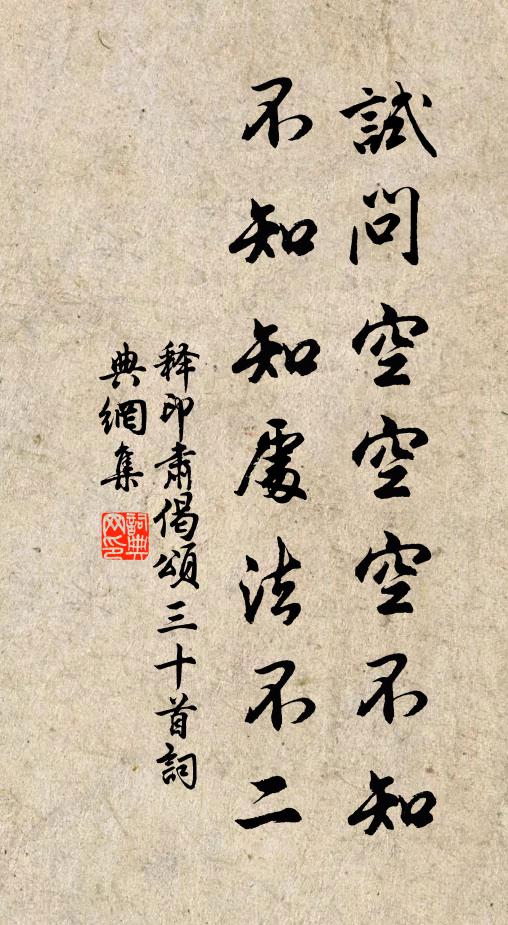 試問空空空不知
不知知處法不二
释印肃偈頌三十首詞
典網集
詞典
网印